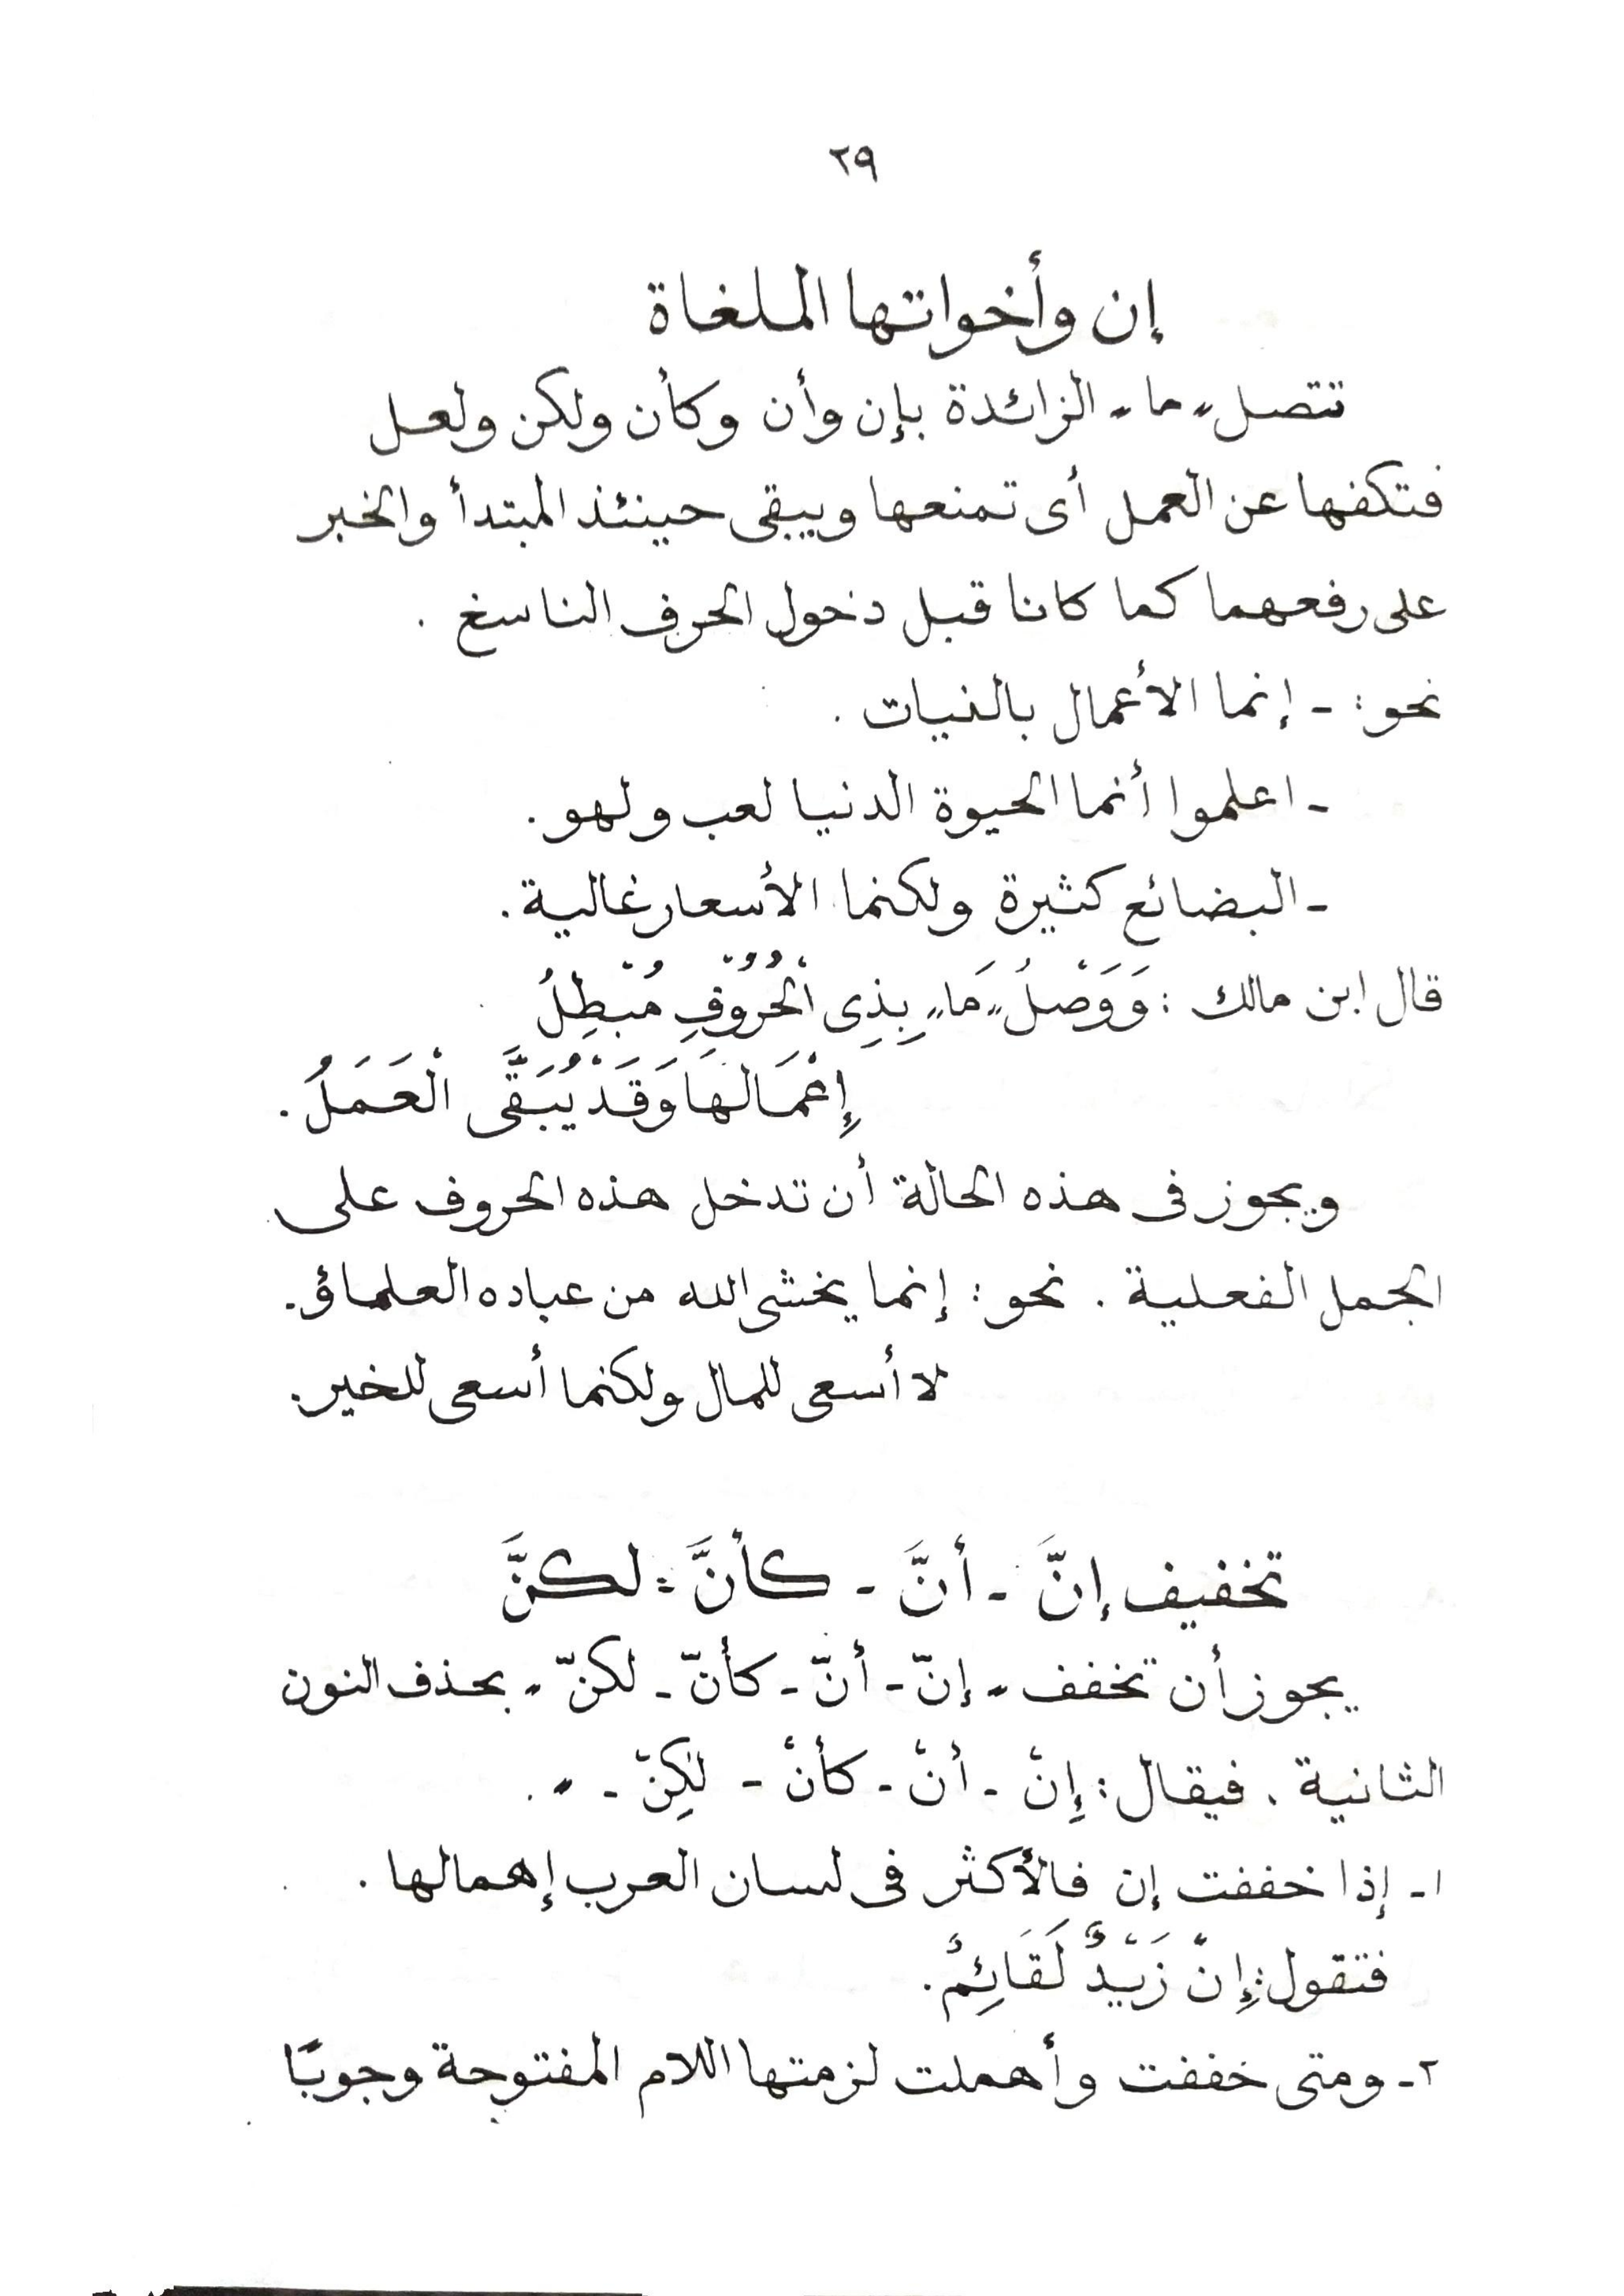 ٢٩
إن وأخواتها الملغاة
تتصل "ما" الزائدة بإن وأن وكأن ولكن ولعل
فتكفها عن العمل أى تمنعها ويبقى حينئذ المبتدأ والخبر
على رفعهما كما كانا قبل دخول الحرف الناسخ .
نحو: - إنما الأعمال بالنيات .
- اعلموا أنما الحيوة الدنيا لعب ولهو.
- البضائع كثيرة ولكنما الأسعار غالية.
قال ابن مالك : وَوَصْلُ "مَا" بِذِى الْحُرُوْفِ مُبْطِلُ
إِعْمَالَهَا وَقَدْ يُبَقَّى الْعَمَلُ .
ويجوز فى هذه الحالة أن تدخل هذه الحروف على
الجمل الفعلية . نحو : إنما يخشى الله من عباده العلماؤ.
لا أسعى للمال ولكنما أسعى للخير.
تخفيف إنَّ - أنَّ - كأنَّ - لكنَّ
يجوز أن تخفف " إنّ - أنّ - كأنّ - لكنّ " بحذف النون
الثانية . فيقال : إِنْ - أنْ - كأنْ - لٰكِنْ - " .
١- إذا خففت إن فالأكثر فى لسان العرب إهمالها .
فتقول: إِنْ زَيْدٌ لَقَائِمٌ.
٢- ومتى خففت وأهملت لزمتها اللام المفتوحة وجوبًا